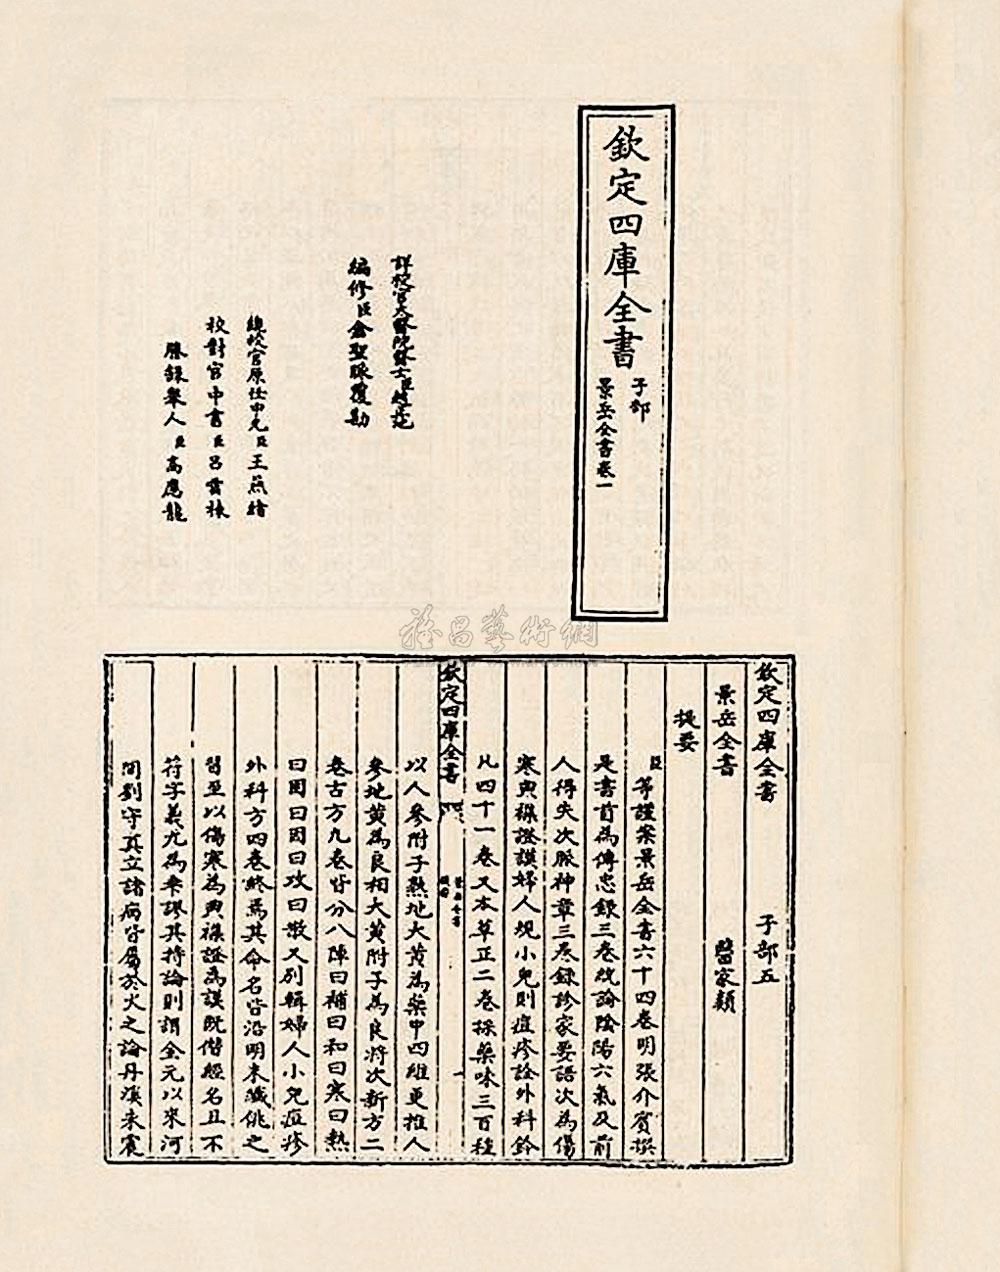 欽定四庫全書
子部
景岳全書卷一
詳校官太醫院醫士臣
編修臣倉聖脈覆勘
總校官原任中允臣王燕緒
校對官中書臣呂雲棟
謄錄舉人臣高應龍
隆昌藝術網
欽定四庫全書 子部五
景岳全書 醫家類
提要
臣等謹案景岳全書六十四卷明張介賓撰
是書首為傳忠錄三卷統論陰陽六氣及前
人得失次脈神章三卷錄診家要語次為傷
寒典雜證謨婦人規小兒則痘疹詮外科鈐
凡四十一卷又本草正二卷採藥味三百種
欽定四庫全書
景岳全書
提要
以人參附子熟地大黃為藥中四維更推人
參地黃為良相大黃附子為良將次新方二
卷古方九卷皆分八陣曰補曰和曰寒曰熱
曰固曰因曰攻曰散又列輯婦人小兒痘疹
外科方四卷終焉其命名皆沿明末纖佻之
習至以傷寒為典雜證為謨既僭經名且不
符字義尤為乖謬其持論則謂金元以來河
間劉守真立諸病皆屬於火之論丹溪朱震